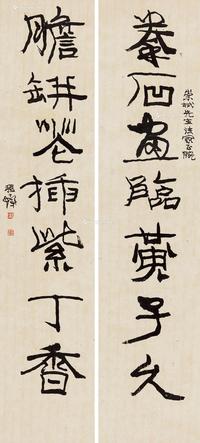 拳石畫臨黃子久
先生法家正腕
膽缾花插紫丁香
程十髮